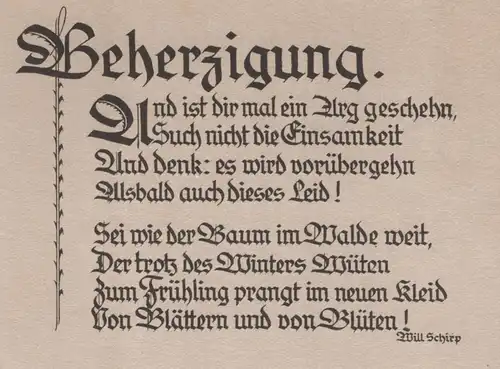 Beherzigung.
Und ist dir mal ein Arg geschehn,
Such nicht die Einsamkeit
Und denk: es wird vorübergehn
Alsbald auch dieses Leid!
Sei wie der Baum im Walde weit,
Der trotz des Winters Wüten
Zum Frühling prangt im neuen Kleid
Von Blättern und von Blüten!
Will Schirp